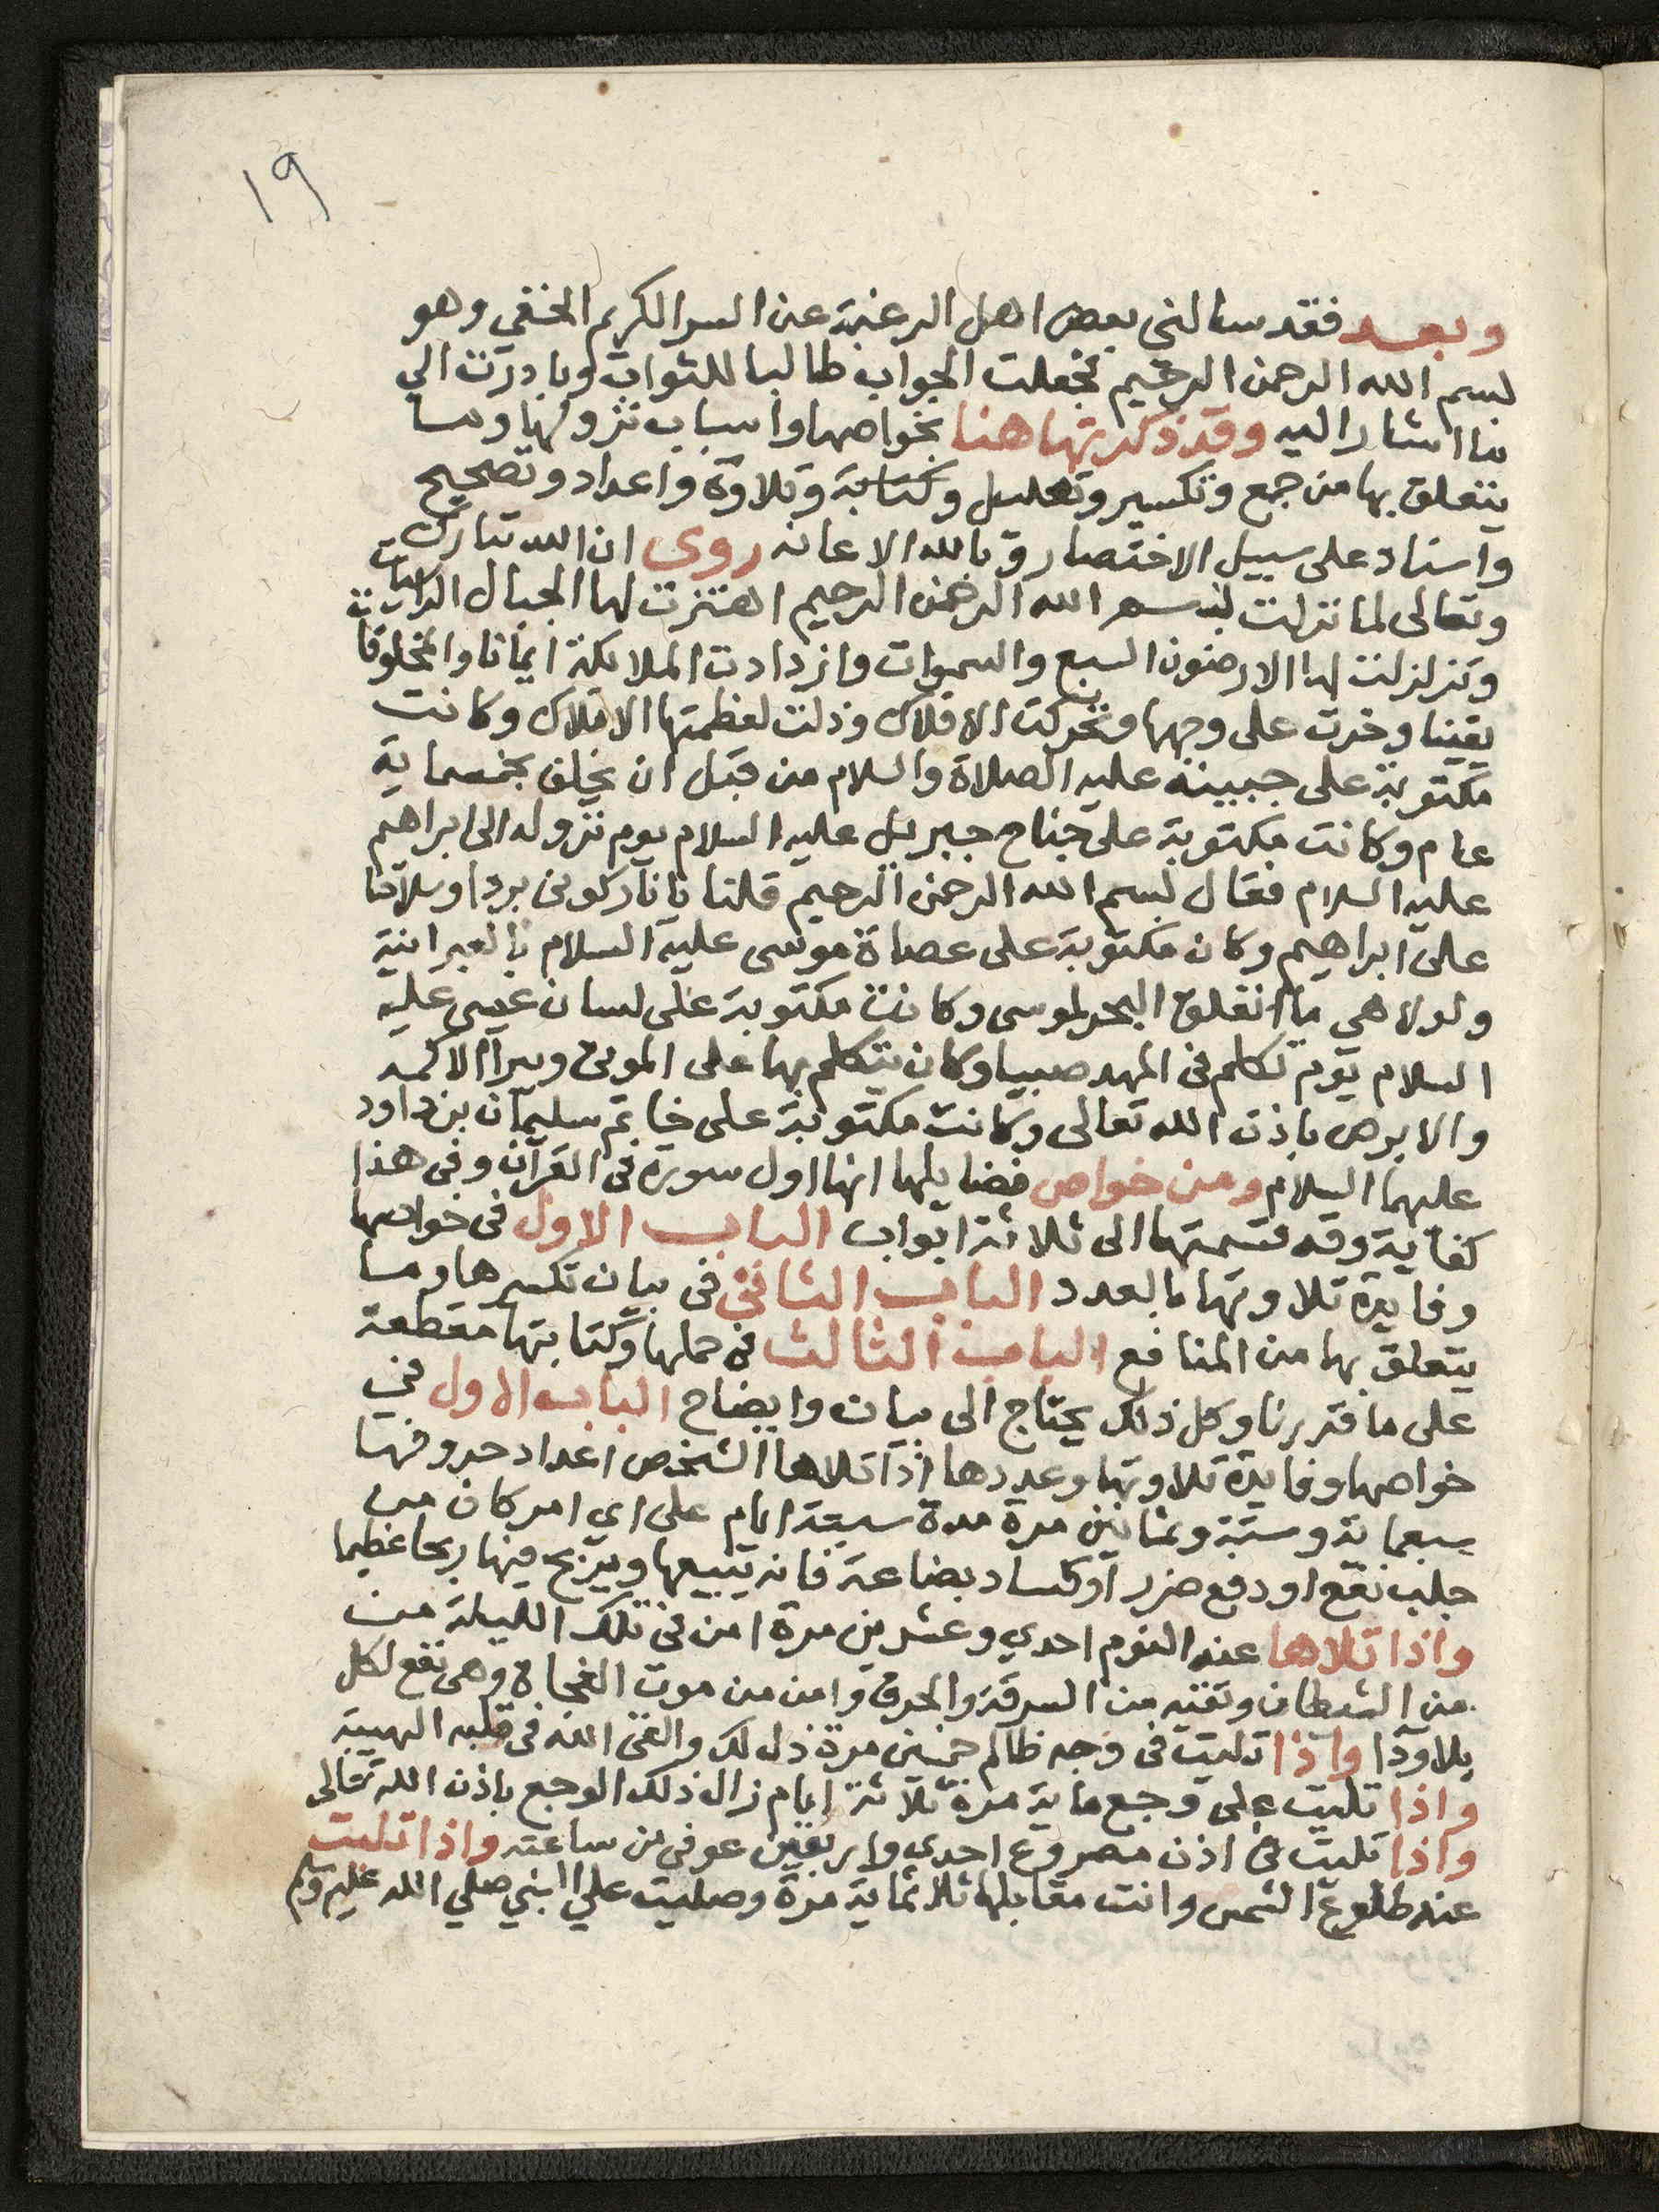 ١٩
وبعد فقد سالنى بعض اهل الرغبة عن السر الكريم الخفي وهو
بسم الله الرحمن الرحيم فجعلت الجواب طالبا للثواب وبادرت الي
ما اشار اليه وقد ذكرتها هنا بخواصها واسباب نزولها وما
يتعلق بها من جمع وتكسير وتعليل وكتابة وتلاوة واعداد وتصحيح
واسناد على سبيل الاختصار وبالله الاعانه روى ان الله تبارك
وتعالى لما نزلت بسم الله الرحمن الرحيم اهتزت لها الجبال الراسيات
وتزلزلت لها الارضون السبع والسموات وازدادت الملائكة ايمانا والمخلوقات
يقينا وخرت على وجهها وتحركت الافلاك وذلت لعظمتها الاملاك وكانت
مكتوبة على جبينه عليه الصلاة والسلام من قبل ان يخلق بخمسماية
عام وكانت مكتوبة على جناح جبريل عليه السلام يوم نزوله الى ابراهيم
عليه السلام فقال بسم الله الرحمن الرحيم قلنا يا نار كونى بردا وسلاما
على ابراهيم وكان مكتوبة على عصاة موسى عليه السلام بالعبرانية
ولولا هى ما انفلق البحر لموسى وكانت مكتوبة على لسان عيسى عليه
السلام يوم تكلم فى المهد صبيا وكان يتكلم بها على الموتى ويبرا الاكمه
والابرص باذن الله تعالى وكانت مكتوبة على خاتم سليمان بن داود
عليهما السلام ومن خواص فضايلها انها اول سورة فى القرآن وفى هذا
كفاية وقد قسمتها الى ثلاثة ابواب الباب الاول فى خواصها
وفايدة تلاوتها بالعدد الباب الثانى فى بيان تكسيرها وما
يتعلق بها من المنافع الباب الثالث فى حملها وكتابتها مقطعة
على ما قررنا وكل ذلك يحتاج الى بيان وايضاح الباب الاول في
خواصها وفايدة تلاوتها وعددها اذا تلاها الشخص اعداد حروفها
سبعماية وستة وثمانين مرة مدة سبعة ايام على اي امر كان من
جلب نفع او دفع ضرر او كساد بضاعة فانه يبيعها ويربح فيها ربحا عظيما
واذا تلاها عند النوم احدي وعشرين مرة امن فى تلك الليلة من
من الشيطان وتقته من السرقة والحرق وامن من موت الفجاة وهى نفع لكل
بلا وذا واذا تليت فى وجه ظالم خمسين مرة ذل لك والقى الله فى قلبه الهيبة
واذا تليت على وجع ماية مرة ثلاثة ايام زال ذلك الوجع باذن الله تعالى
واذا تليت فى اذن مصروع احدى واربعين عوفى من ساعته واذا تليت
عند طلوع الشمس وانت مقابلها ثلاثماية مرة وصليت علي النبي صلي الله عليه وسلم